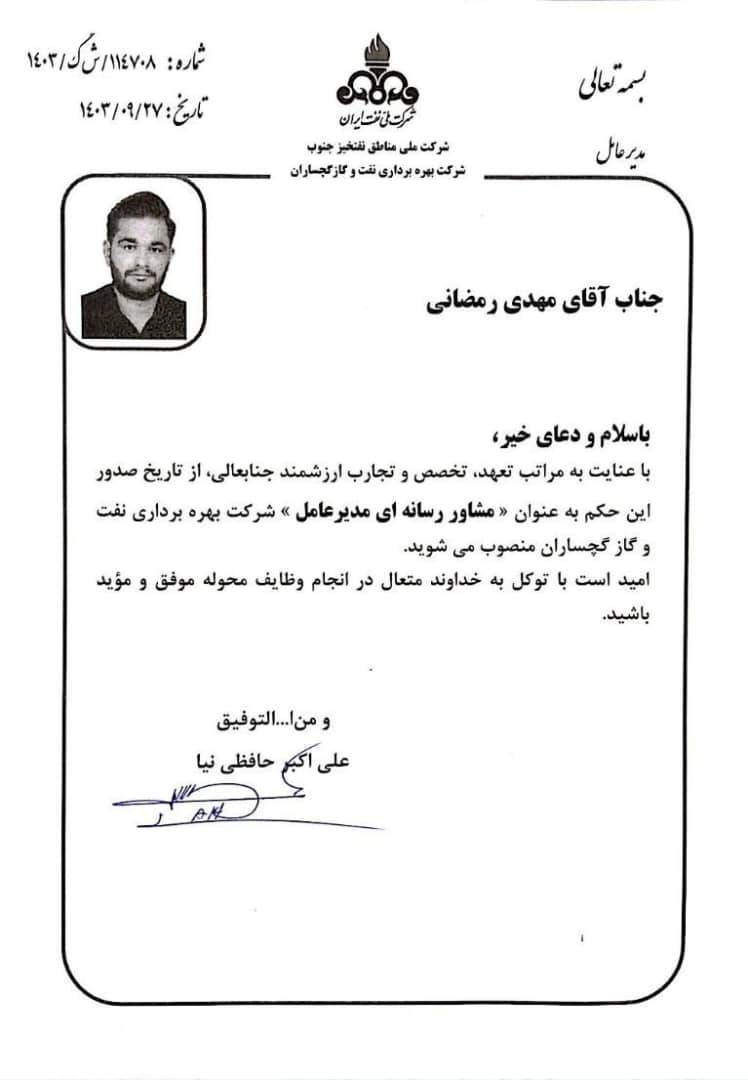 بسمه تعالی
مدیرعامل
شرکت ملی نفت ایران
شرکت ملی مناطق نفتخیز جنوب
شرکت بهره برداری نفت و گاز گچساران
شماره: ۱۱٤۷۰۸/ش گ/۱٤۰۳
تاریخ: ۱٤۰۳/۰۹/۲۷
جناب آقای مهدی رمضانی
باسلام و دعای خیر،
با عنایت به مراتب تعهد، تخصص و تجارب ارزشمند جنابعالی، از تاریخ صدور
این حکم به عنوان « مشاور رسانه ای مدیرعامل » شرکت بهره برداری نفت
و گاز گچساران منصوب می شوید.
امید است با توکل به خداوند متعال در انجام وظایف محوله موفق و مؤید
باشید.
و من ا...التوفیق
علی اکبر حافظی نیا